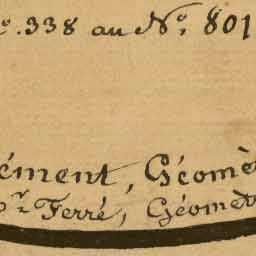 º. 338 au Nº. 801
ément, Géomè
r Ferré, Géomèt